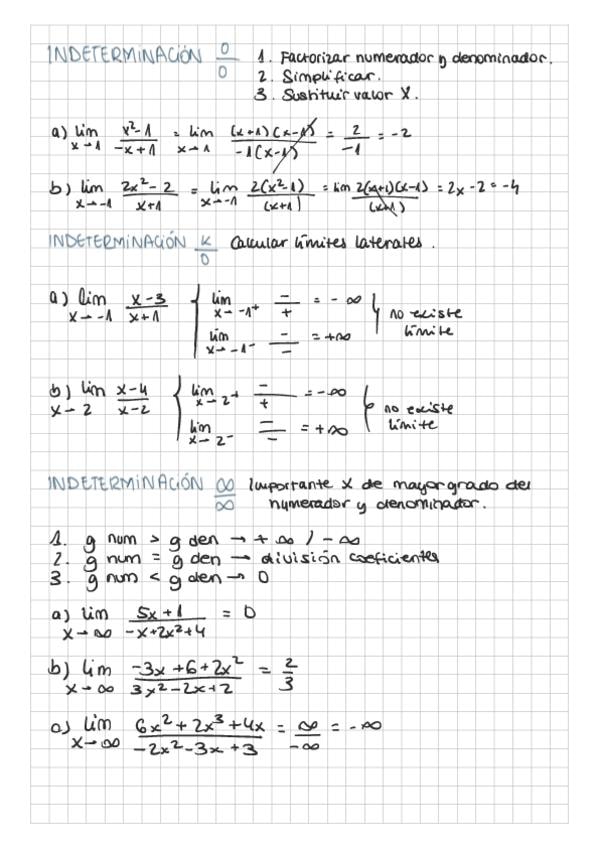 INDETERMINACIÓN 0/0 1. Factorizar numerador y denominador.
2. Simplificar.
3. Sustituir valor X.
a) lim x→1 x²-1 / -x+1 = lim x→1 (x+1)(x-1) / -1(x-1) = 2/-1 = -2
b) lim x→-1 2x²-2 / x+1 = lim x→-1 2(x²-1) / (x+1) = lim 2(x+1)(x-1) / (x+1) = 2x-2 = -4
INDETERMINACIÓN K/0 Calcular límites laterales.
a) lim x→-1 x-3 / x+1 { lim x→-1⁺ -/+ = -∞
lim x→-1⁻ -/- = +∞ } no existe límite
b) lim x→2 x-4 / x-2 { lim x→2⁺ -/+ = -∞
lim x→2⁻ -/- = +∞ } no existe límite
INDETERMINACIÓN ∞/∞ Importante x de mayor grado del
numerador y denominador.
1. g num > g den → +∞ / -∞
2. g num = g den → división coeficientes
3. g num < g den → 0
a) lim x→∞ 5x+1 / -x+2x²+4 = 0
b) lim x→∞ -3x+6+2x² / 3x²-2x+2 = 2/3
c) lim x→∞ 6x²+2x³+4x / -2x²-3x+3 = ∞/-∞ = -∞